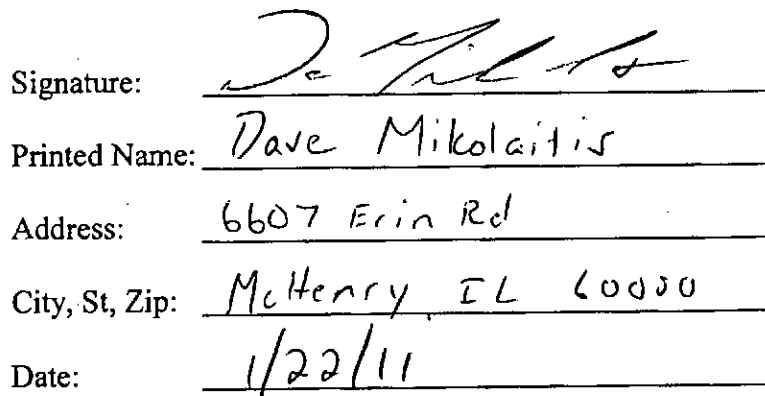 Signature:
Printed Name: Dave Mikolaitis
Address: 6607 Erin Rd
City, St, Zip: McHenry IL 60050
Date: 1/22/11